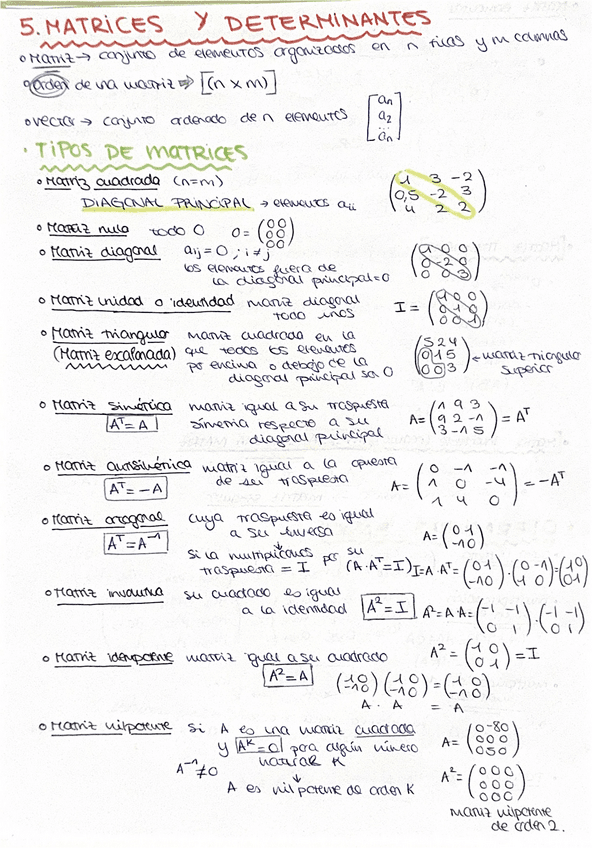 5. MATRICES Y DETERMINANTES
• Matriz → conjunto de elementos organizados en n filas y m columnas
• orden de una matriz ⇒ [(n x m)]
• vector → conjunto ordenado de n elementos [a₁ a₂ ... aₙ]
• TIPOS DE MATRICES
• Matriz cuadrada (n=m)
DIAGONAL PRINCIPAL → elementos aᵢᵢ
(1 3 -2
0,5 -2 3
4 2 2)
• Matriz nula todo 0 0 = (0 0
0 0
0 0)
• Matriz diagonal aij = 0 ; i ≠ j
los elementos fuera de
la diagonal principal = 0
(1 0 0
0 -2 0
0 0 3)
• Matriz unidad o identidad matriz diagonal
todo unos
I = (1 0 0
0 1 0
0 0 1)
• Matriz triangular matriz cuadrada en la
(Matriz escalonada) que todos los elementos
por encima o debajo de la
diagonal principal son 0
(5 2 4
0 1 5
0 0 3) ← matriz triangular
superior
• Matriz simétrica matriz igual a su traspuesta
Aᵀ = A simetría respecto a su
diagonal principal
A = (1 9 3
9 2 -1
3 -1 5) = Aᵀ
• Matriz antisimétrica matriz igual a la opuesta
Aᵀ = -A de su traspuesta
A = (0 -1 -1
1 0 -4
1 4 0) = -Aᵀ
• Matriz ortogonal cuya traspuesta es igual
Aᵀ = A⁻¹ a su inversa
A = (0 1
-1 0)
si la multiplicamos por su
traspuesta = I (A · Aᵀ = I) I = A · Aᵀ = (0 1
-1 0) · (0 -1
1 0) = (1 0
0 1)
• Matriz involutiva su cuadrado es igual
a la identidad A² = I A² = A·A = (-1 -1
0 1) · (-1 -1
0 1)
A² = (1 0
0 1) = I
• Matriz idempotente matriz igual a su cuadrado
A² = A (1 0
-1 0) (1 0
-1 0) = (1 0
-1 0)
A · A = A
• Matriz nilpotente si A es una matriz cuadrada
y Aᴷ = 0 para algún número
natural K
A⁻¹ ≠ 0
A es nilpotente de orden K
A = (0 -8 0
0 0 0
0 5 0)
A² = (0 0 0
0 0 0
0 0 0)
matriz nilpotente
de orden 2.